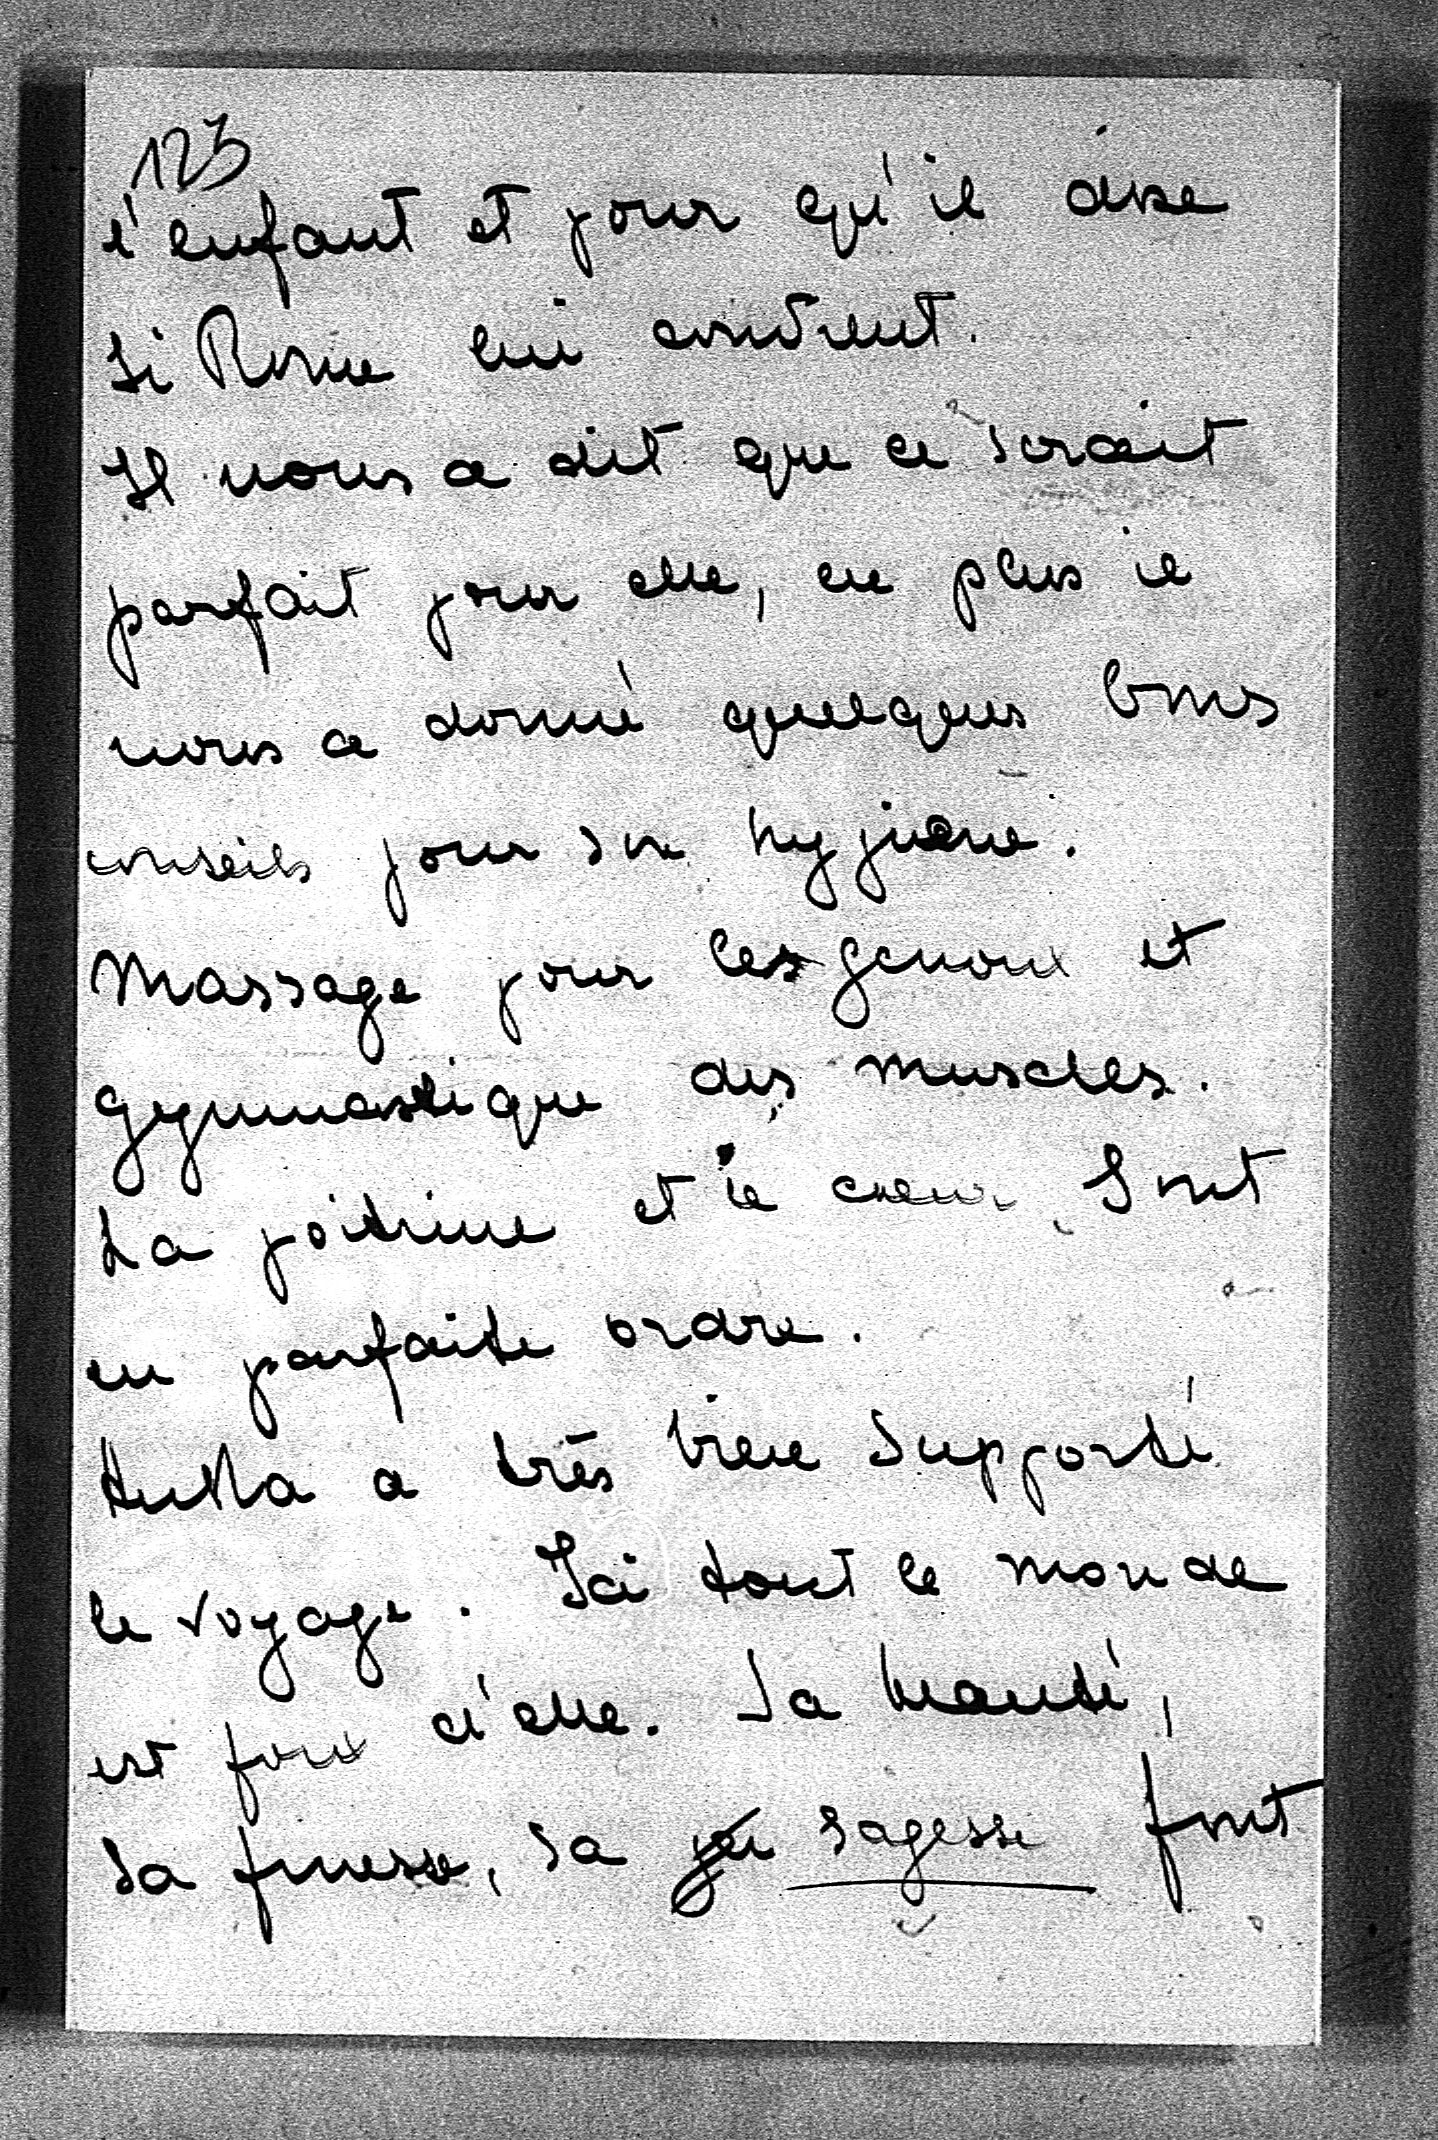 123
l'enfant et pour qu'il dise
si Rome lui convient.
Il nous a dit que ce serait
parfait pour elle, en plus il
nous a donné quelques bons
conseils pour son hygiene.
Massage pour les genoux et
gymnastique des muscles.
La poitrine et le coeur sont
en parfaite ordre.
a très bien supporté
le voyage. Ici tout le monde
est foux d'elle. Sa beauté,
sa finesse, sa sagesse font